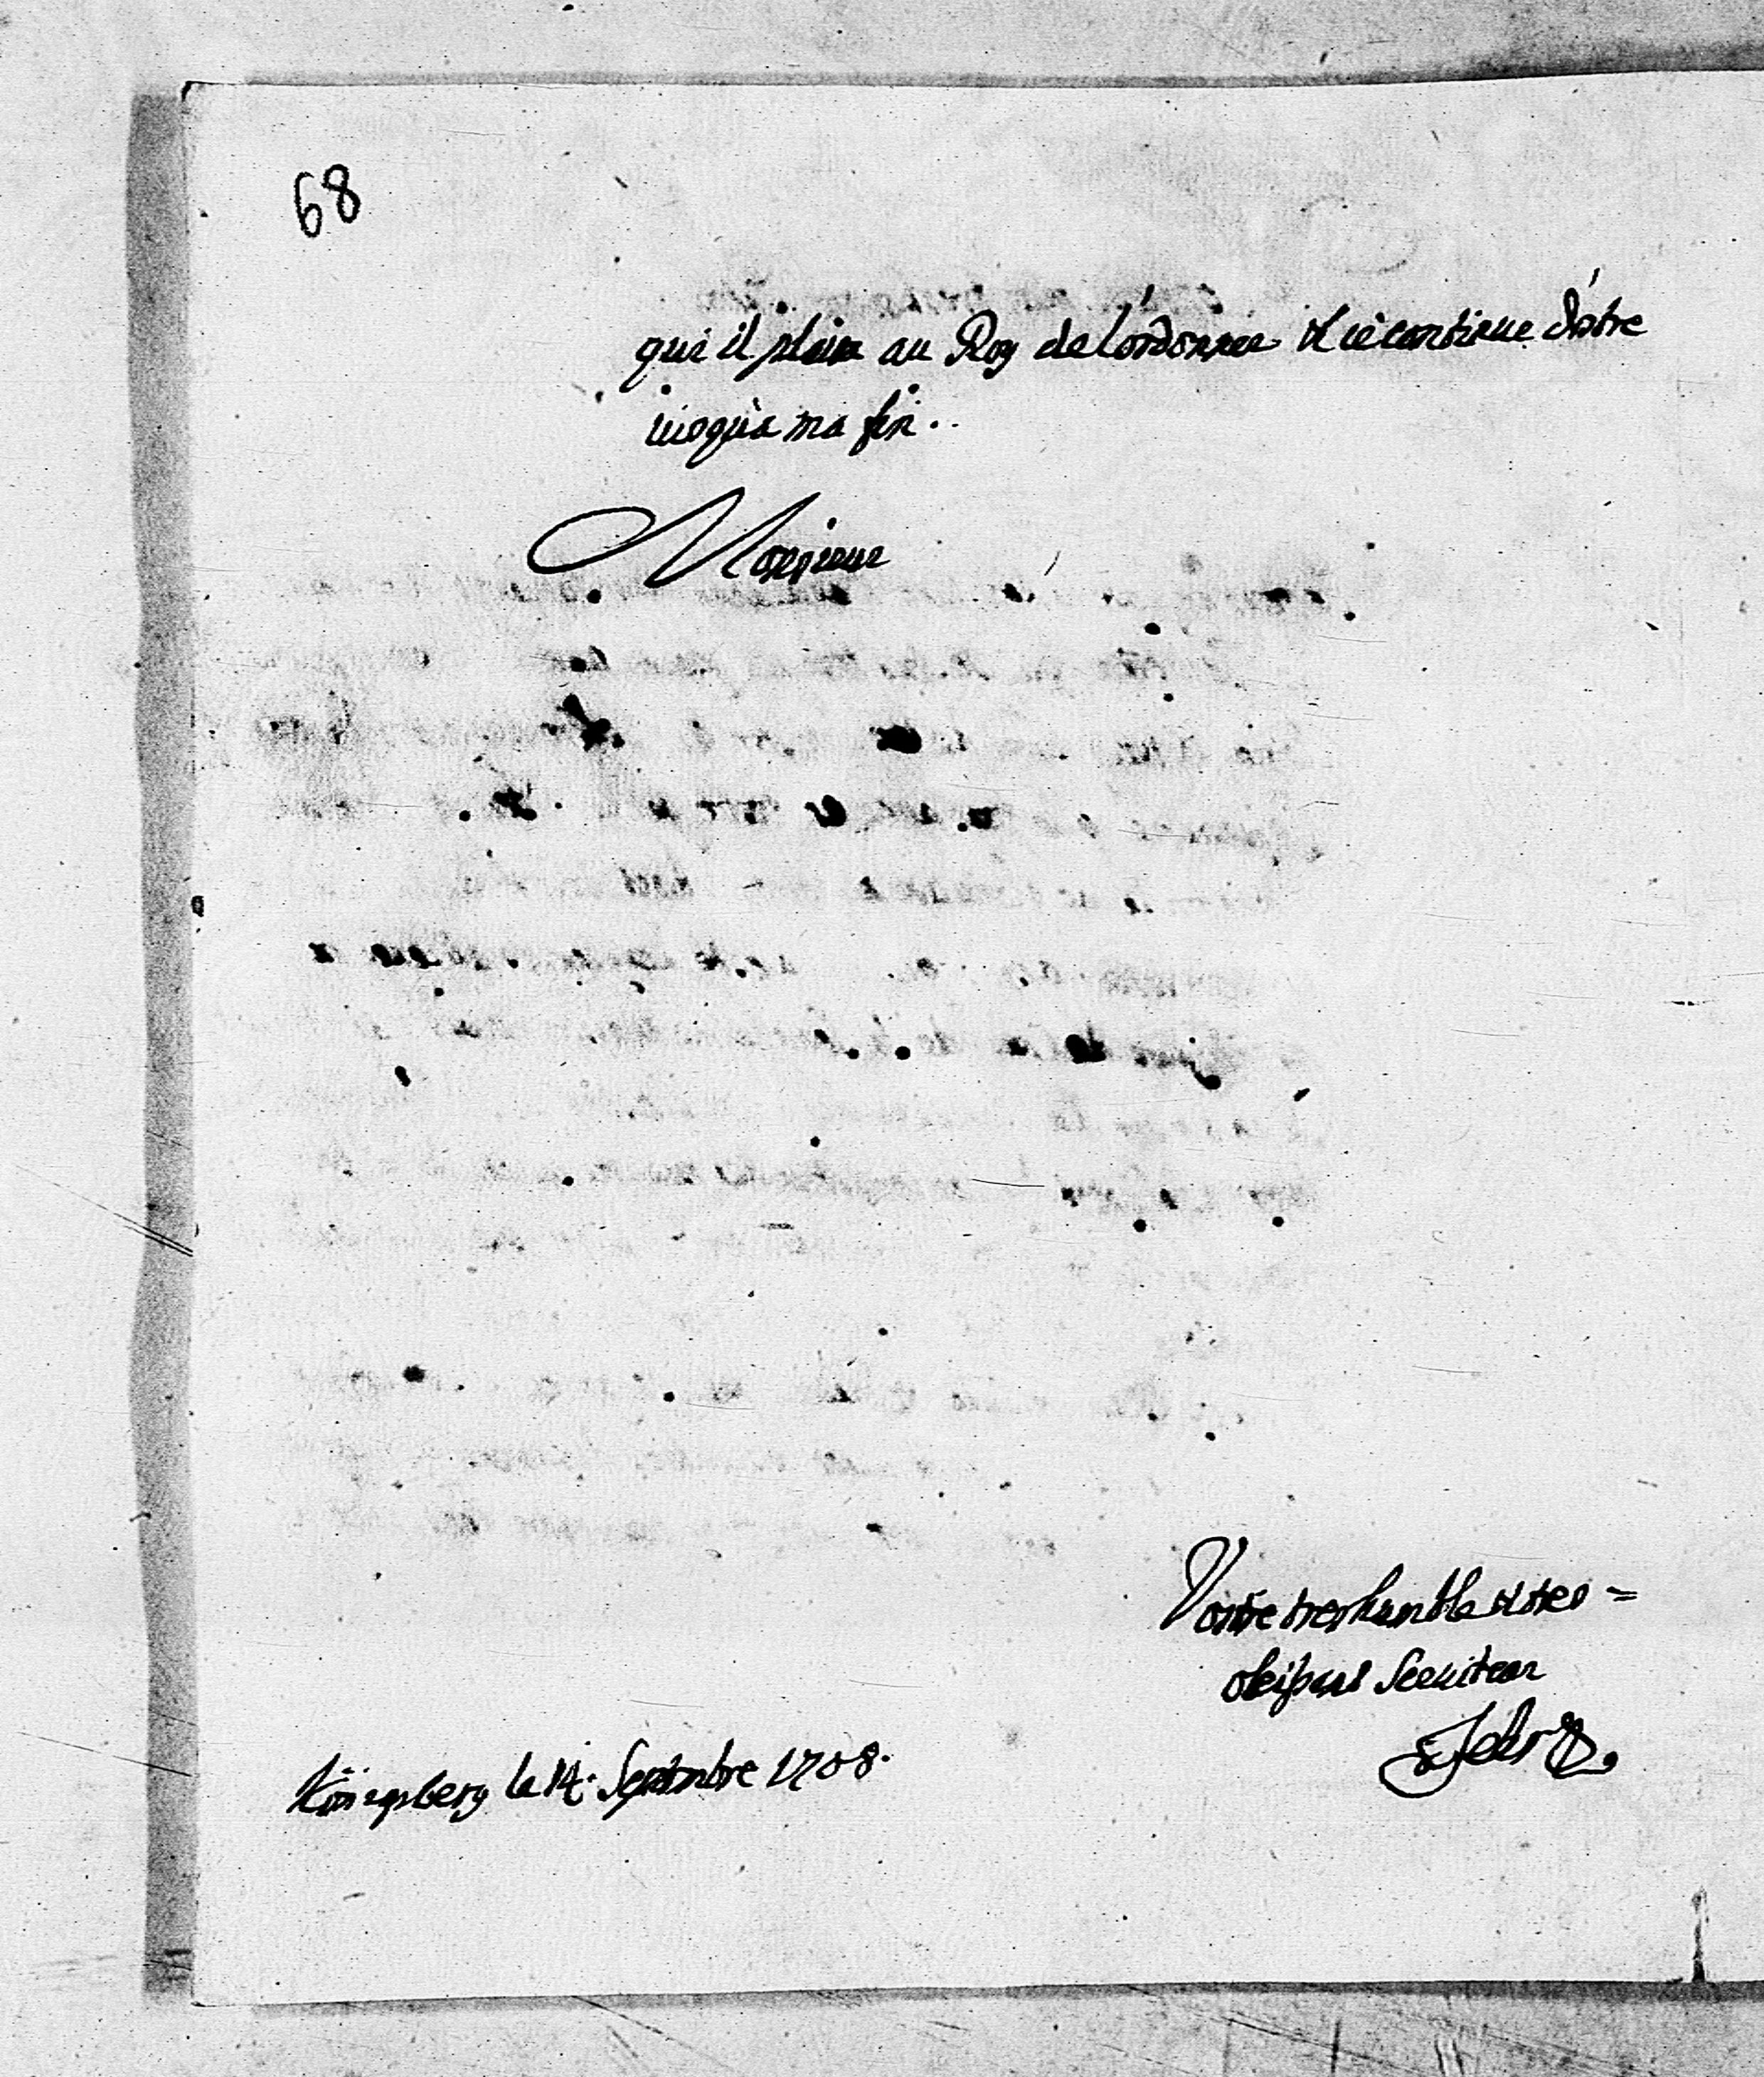 68
qui il plaira au Roy de l'ordonner et ie continue d'âtre
iusqu'a ma fin.
Monsieur
Vostre tres humble et tres =
obeissant Serviteur
Königsberg le 14. Septembre 1708.